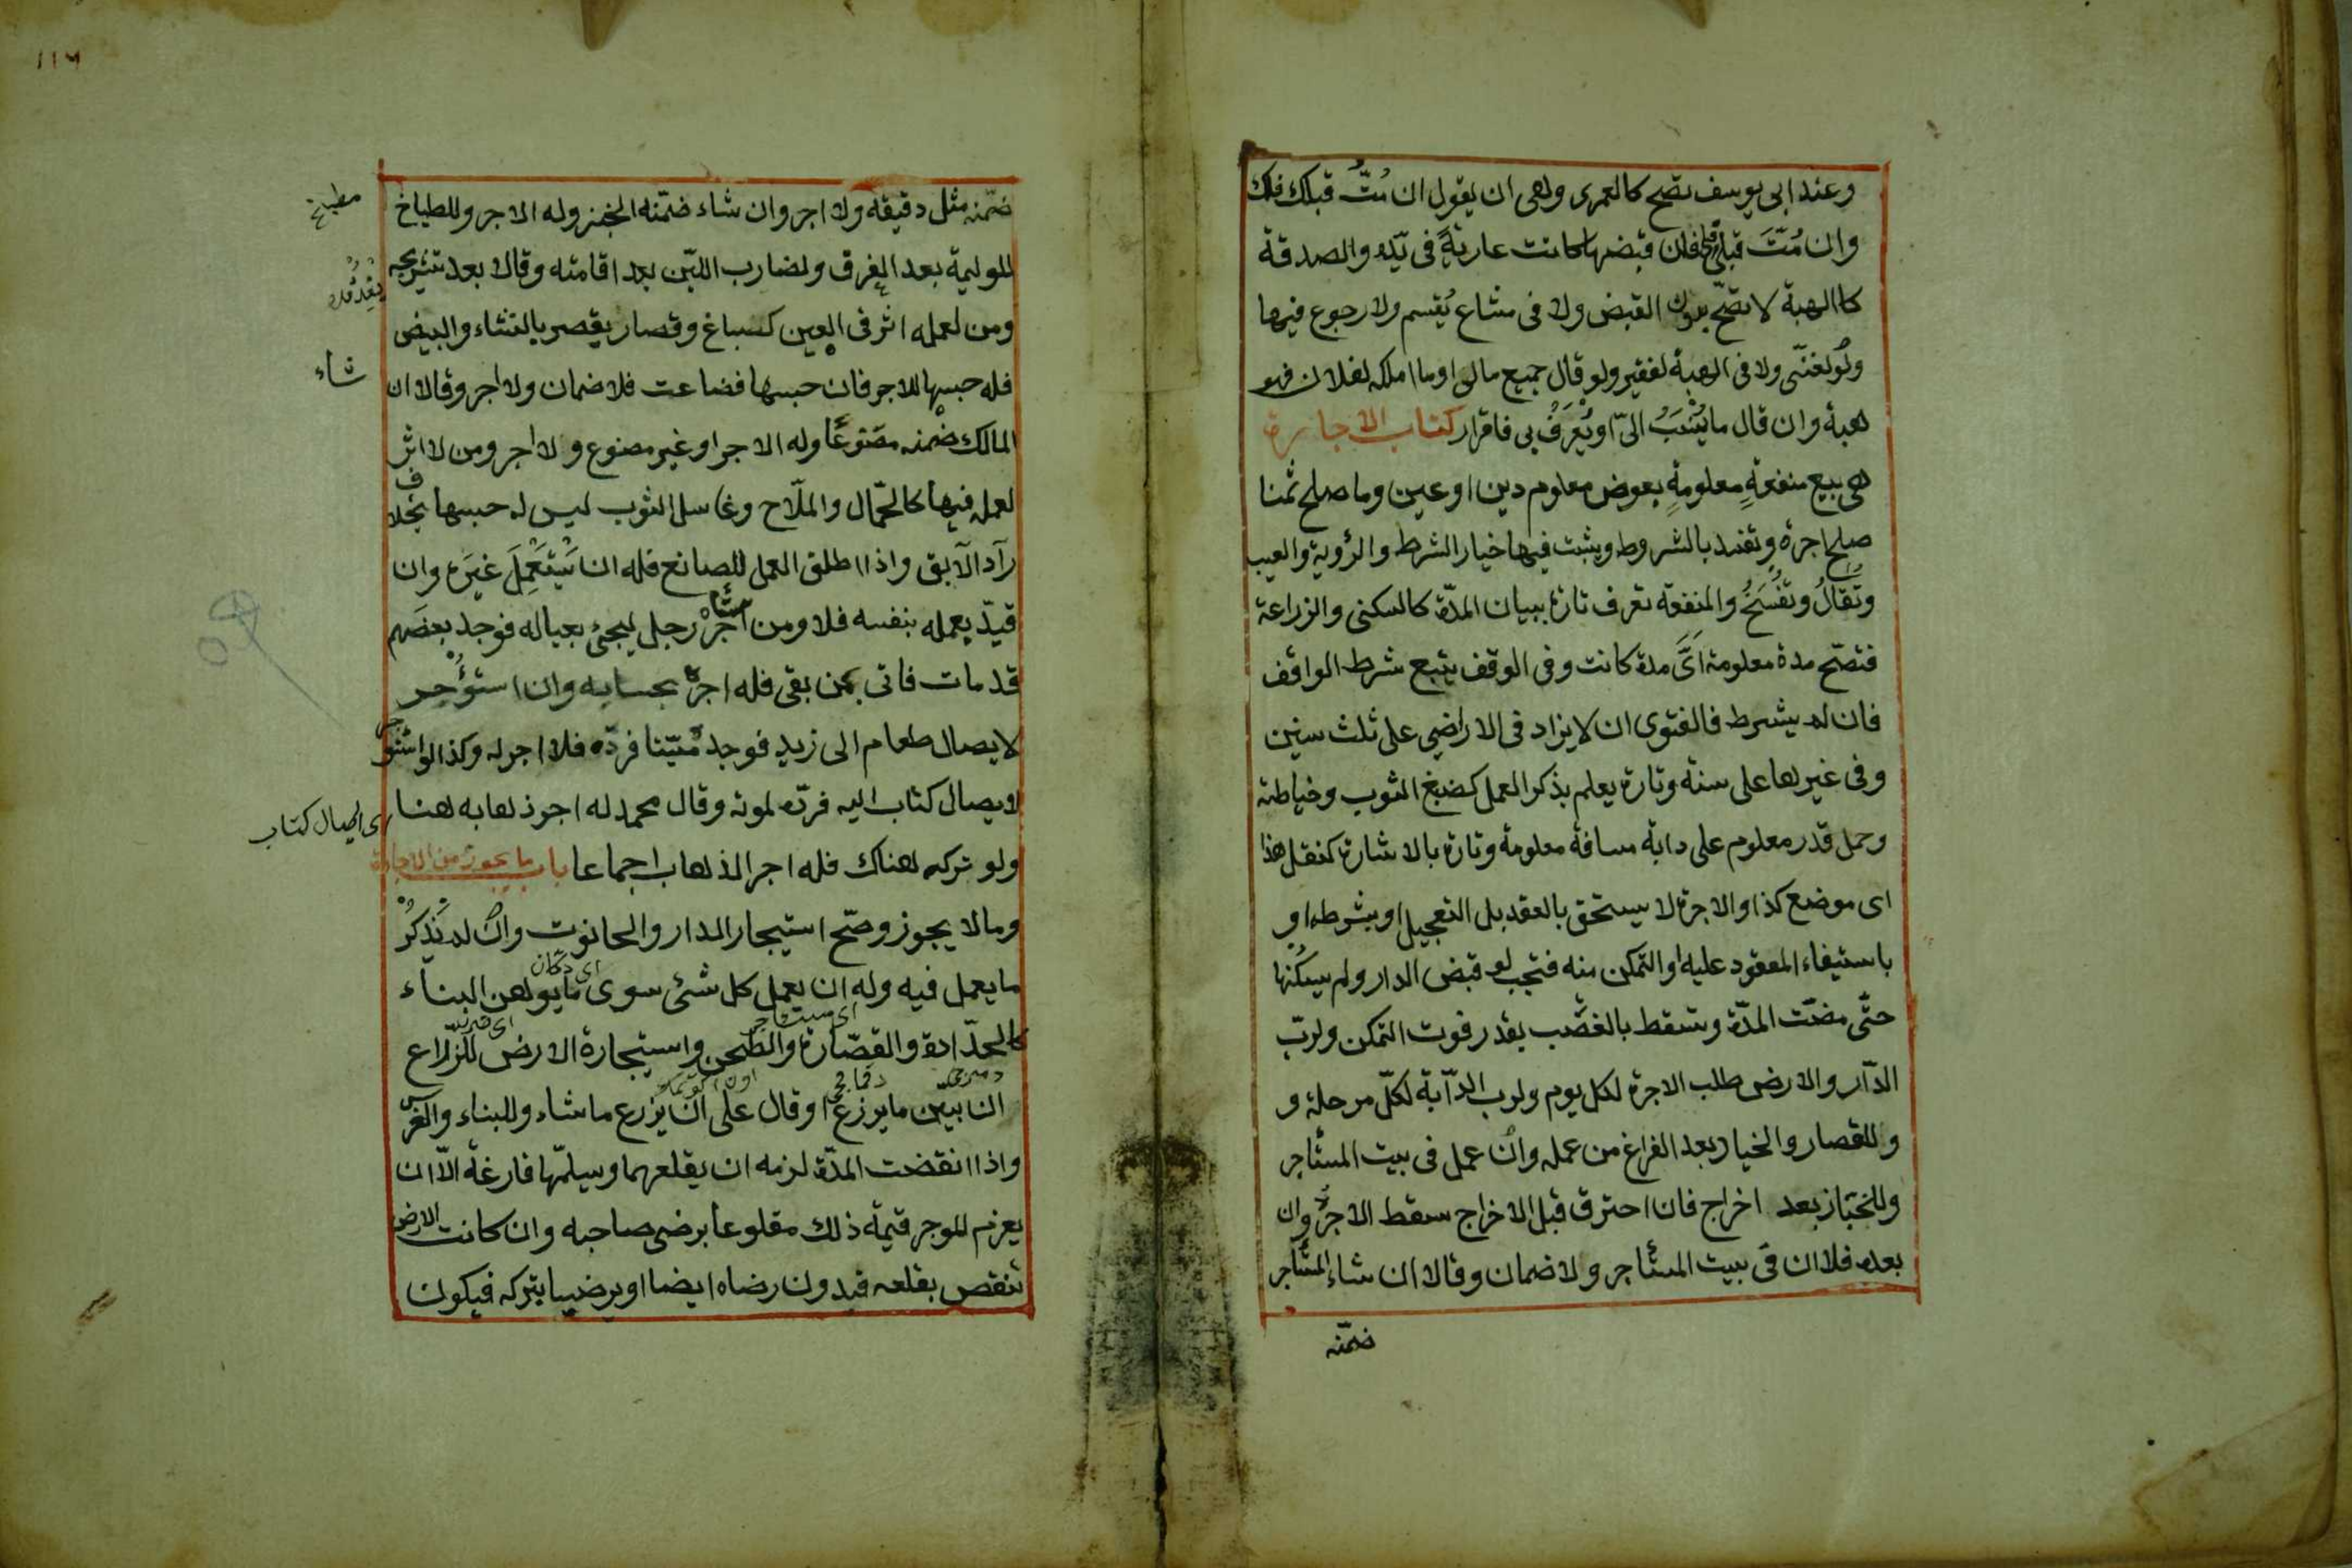 وعند ابى يوسف تصح كالعمرى وهى ان يقول ان مُتُّ قبلك فلك
وان مُتَّ قبلى فلى فان قبضها كانت عارية فى يده والصدقة
كاالهبة لا تصحّ بدون القبض ولا فى مشاع يُقسم ولا رجوع فيها
ولو لغنّى ولا فى الهبة لفقير ولو قال جميع مالى او ما املكه لفلان فهو
هبة وان قال ما يُنْسَبُ الىّ او يُعْرَفُ بى فاقرار كتاب الاجارة
هى بيع منفعةٍ معلومةٍ بعوض معلوم دين او عين وما صلح ثمنا
صلح اجرة وتفسد بالشروط ويثبت فيها خيار الشرط والرؤية والعيب
وتُقالُ وتُفْسَخُ والمنفعة تعرف تارة ببيان المدّة كالسكنى والزراعة
فتصّح مدة معلومة اىَّ مدة كانت وفى الوقف يتبع شرط الواقف
فان لم يشرط فالفتوى ان لا يزاد فى الاراضى على ثلث سنين
وفى غيرها على سنة وتارة يعلم بذكر العمل كصبغ الثوب وخياطته
وحمل قدر معلوم على دابة مسافة معلومة وتارة بالاشارة كنقل هذا
اى موضع كذا والاجرة لا يستحق بالعقد بل التعجيل او بشرطه او
باستيفاء المعقود عليه او التمكن منه فتجب لو قبض الدار ولم يسكنها
حتّى مضّت المدّة وتسقط بالغصْب بقدر فوت التمكن ولربّ
الدّار والارض طلب الاجرة لكل يوم ولرب الدّآبة لكلّ مرحلة و
وللقصار والخياد بعد الفراغ من عمله وان عمل فى بيت المستأجر
وللخبّاز بعد اخراج فان احترق قبل الاخراج سقط الاجر وان
بعده فلا ان فى بيت المستأجر ولا ضمان وقالا ان شاء المستأجر
ضمّنه
١١٦
ضمّنه مثل دقيقه ولا اجر وان شاء ضمّنه الخبز وله الاجر وللطباخ
مطبخ
للوليمة بعد الغرق ولضارب اللبّن بعد اقامته وقالا بعد تشريجه
ومن لعمله اثر فى العين كصباغ وقصار يقصر بالنشاء والبيض
فله حبسها للاجر فان حبسها فضاعت فلا ضمان ولا اجر وقالا ان
شاء
المالك ضمنه مصنوعًا وله الاجر او غير مصنوع ولا اجر ومن لا اثر
لعمله فيها كالحمّال والملّاح وغاسل الثوب ليس له حبسها بخلاف
رآد الآبق واذا اطلق العمل للصانع فله ان يَسْتَعْمِلَ غيرَه وان
قيّد بعمله بنفسه فلا ومن استأجره رجل ليجئ بعياله فوجد بعضهم
قد مات فاتى بمن بقى فله اجرة بحسابه وان استؤجر
لايصال طعام الى زيد فوجده ميّتا فردّه فلا اجر له وكذا لو استؤجر
لايصال كتاب اليه فردّه لموته وقال محمد له اجر ذهابه هنا
اى ايصال كتاب
ولو تركه هناك فله اجر الذهاب اجماعا باب ما يجوز من الاجارة
وما لا يجوز وصّح استيجار الدار والحانوت وان لم يَذْكُرْ
اى دكان
ما يعمل فيه وله ان يعمل كل شئ سوى ما يوهن البناء
اى مستأجر
كالحدّادة والقصّارة والطحن واستيجارة الارض للزراع
ان بيّن ما يرزع او قال على ان يزرع ما شاء وللبناء والغرس
واذا انقضت المدّة لزمه ان يقلعهما ويسلمّها فارغة الّا ان
يغرم للموجر قيمة ذلك مقلوعا برضى صاحبه وان كانت الارض
تنقص بقلعه فبدون رضاه ايضا او يرضيا بتركه فيكون